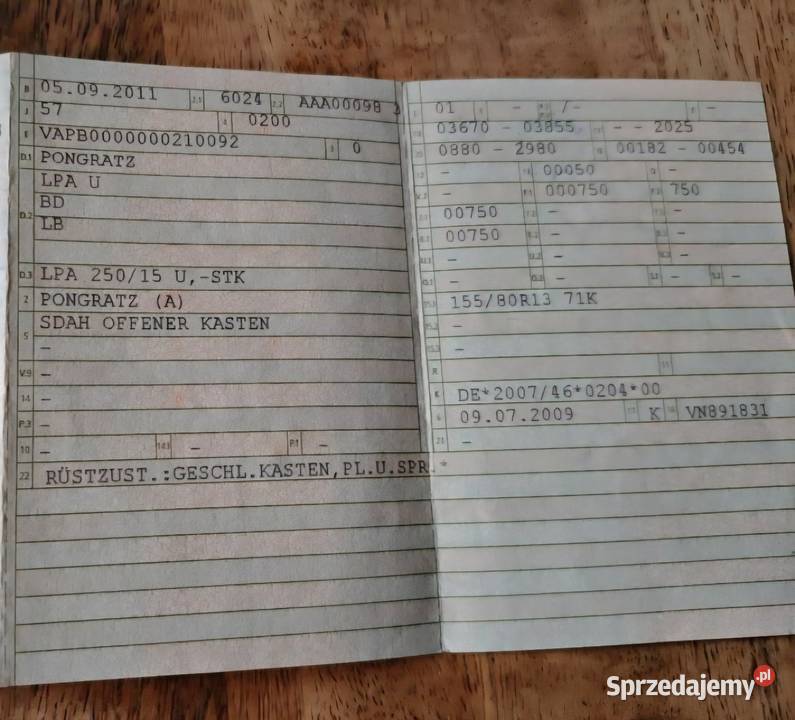 B 05.09.2011 2.1 6024 2.2 AAA00098
J 57 4 0200
E VAPB0000000210092 3 0
D.1 PONGRATZ
LPA U
D.2 BD
LB
D.3 LPA 250/15 U,-STK
2 PONGRATZ (A)
5 SDAH OFFENER KASTEN
–
V.9 –
14 –
P.3 –
10 – 14.1 – P.1 –
22 RÜSTZUST.:GESCHL.KASTEN,PL.U.SPR.*
01 – /-  –
03670 – 03855 – – 2025
0880 – 2980 00182 – 00454
– 00050 –
– 000750 750
00750 – –
00750 – –
– – –
– – – –
155/80R13 71K
–
–
R 11
K DE*2007/46*0204*00
6 09.07.2009 17 K 16 VN891831
21 –
Sprzedajemy.pl